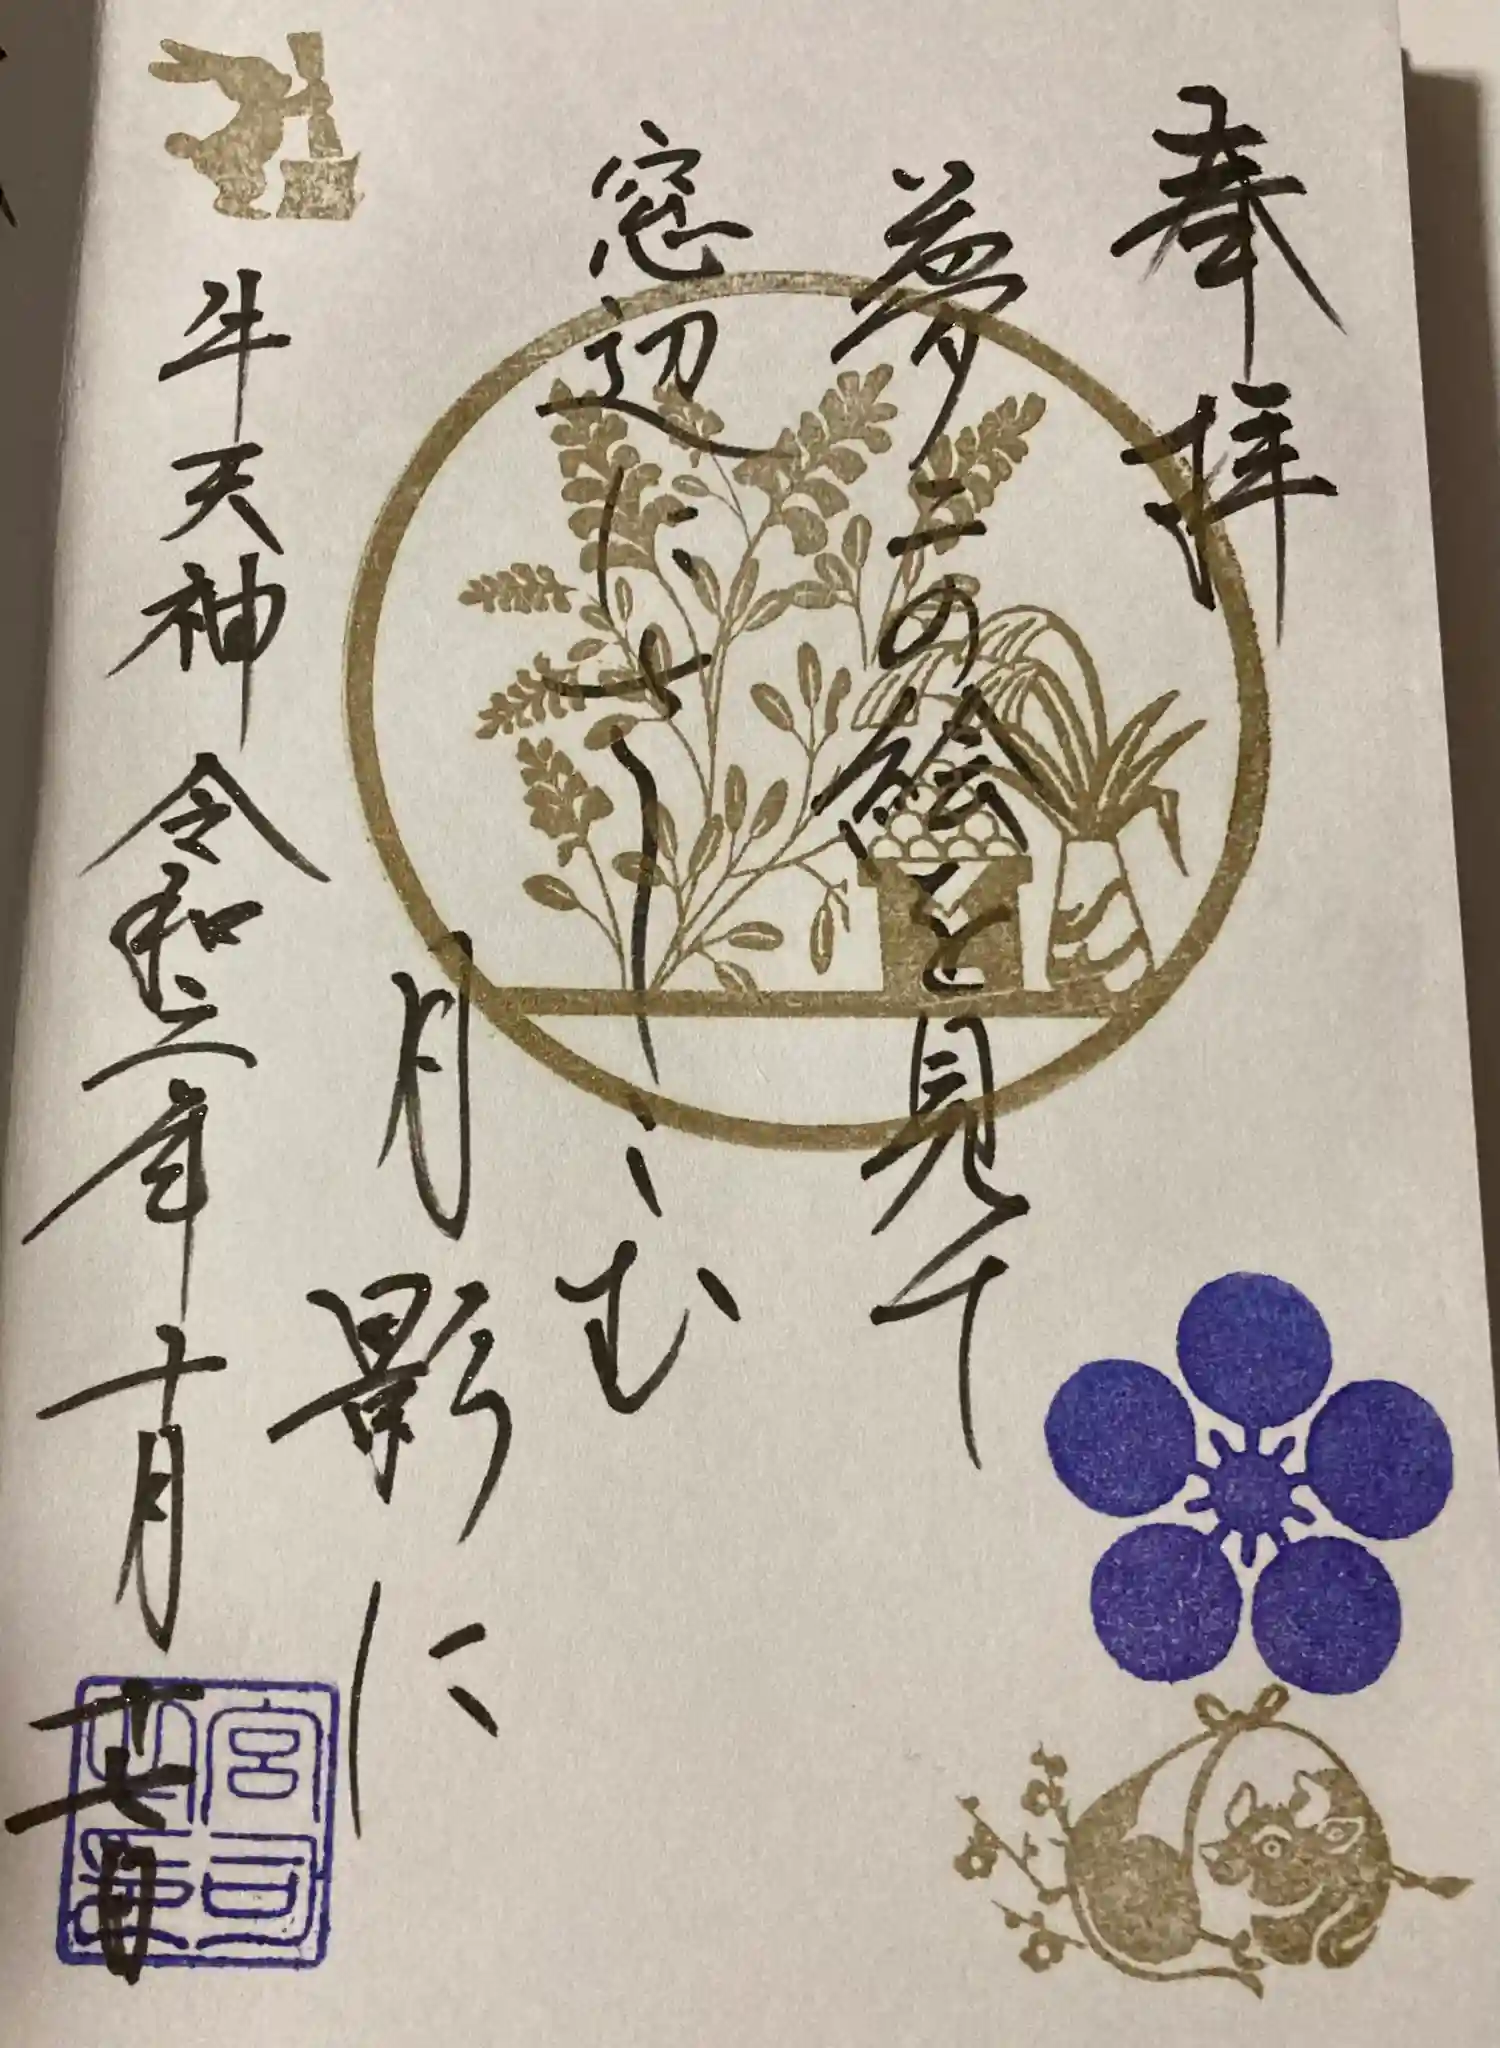 奉拝
夢二の絵を見て
窓辺によりしむ
月影に
牛天神 令和二年十月十七日
宮司之印